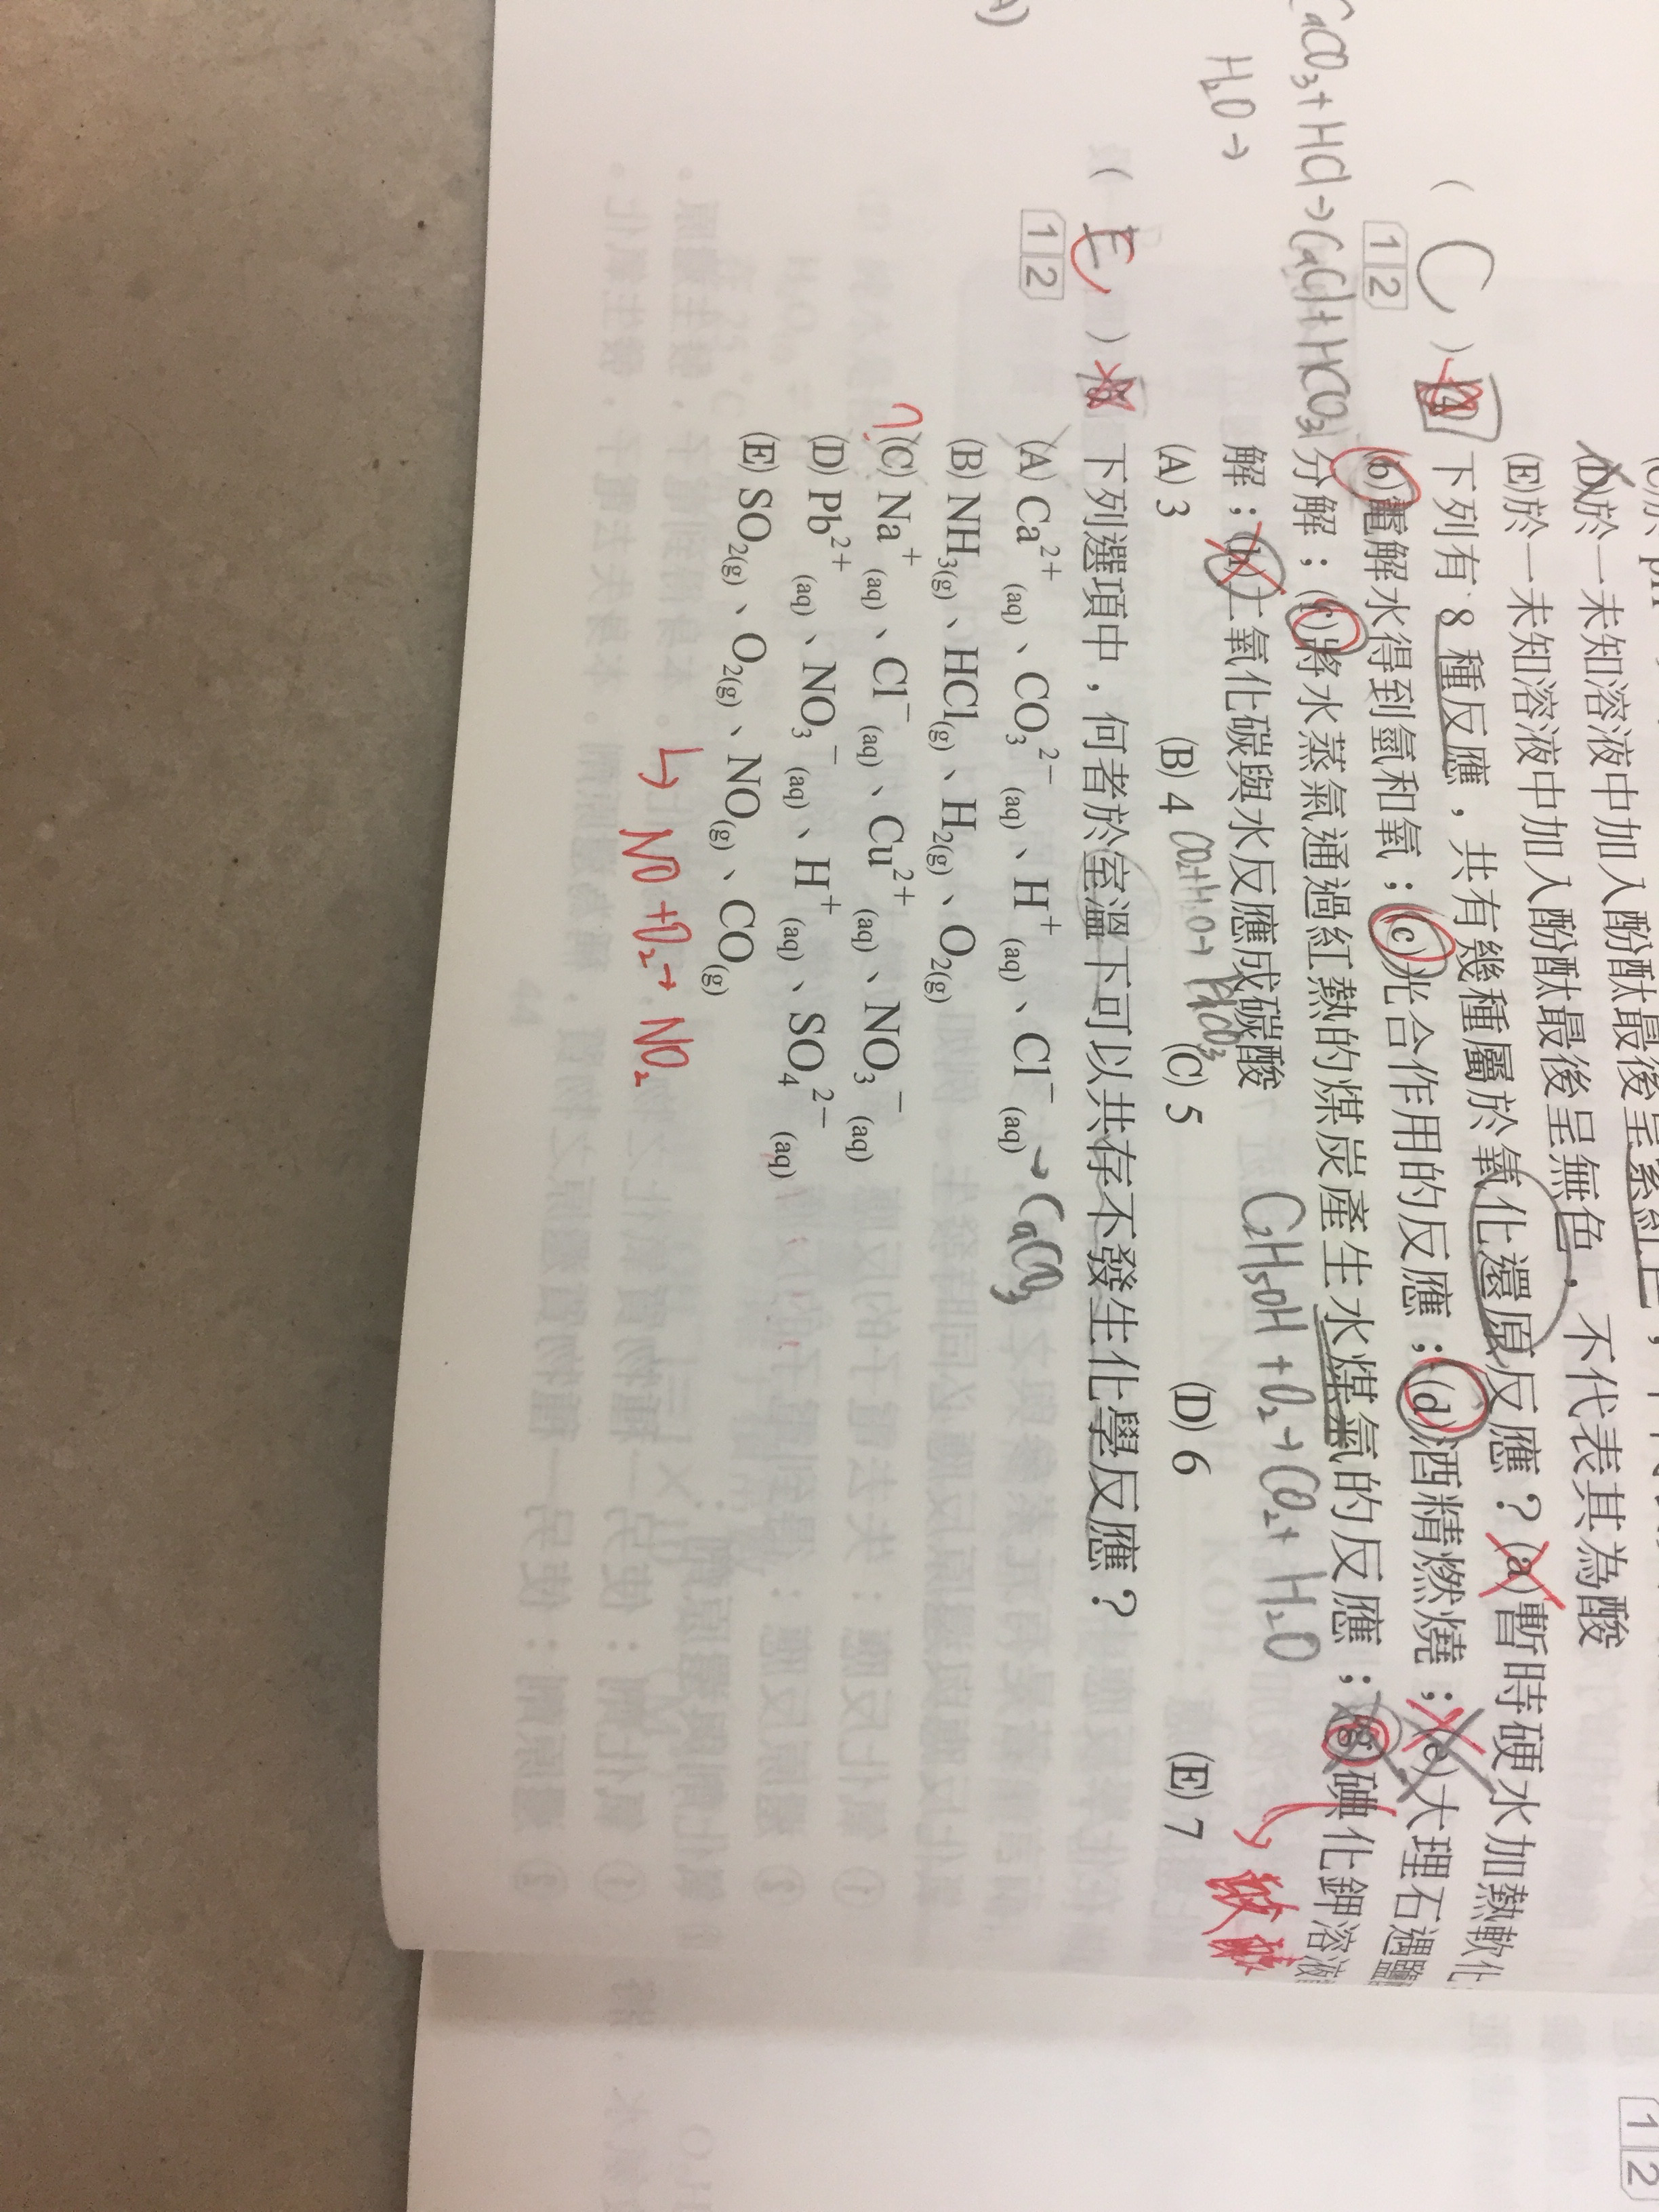 (E)於一未知溶液中加入酚酞最後呈無色，不代表其為酸
(D)於一未知溶液中加入酚酞最後呈紫紅色，
( C ) 下列有 8 種反應，共有幾種屬於氧化還原反應？(a)暫時硬水加熱軟化
12 (b)電解水得到氫和氧；(c)光合作用的反應；(d)酒精燃燒；(e)大理石遇鹽
分解；(f)將水蒸氣通過紅熱的煤炭產生水煤氣的反應；(g)碘化鉀溶液
解；(h)二氧化碳與水反應成碳酸
CaCO₃+HCl→CaCl+HCO₃
H₂O→
C₂H₅OH + O₂→CO₂+ H₂O
(A) 3 (B) 4 (C) 5 (D) 6 (E) 7
CO₂+H₂O→
( ) 下列選項中，何者於室溫下可以共存不發生化學反應？
12 (A) Ca²⁺(aq)、CO₃²⁻(aq)、H⁺(aq)、Cl⁻(aq) →CaCO₃
(B) NH₃(g)、HCl(g)、H₂(g)、O₂(g)
? (C) Na⁺(aq)、Cl⁻(aq)、Cu²⁺(aq)、NO₃⁻(aq)
(D) Pb²⁺(aq)、NO₃⁻(aq)、H⁺(aq)、SO₄²⁻(aq)
(E) SO₂(g)、O₂(g)、NO(g)、CO(g)
↳ NO +O₂→ NO₂
12